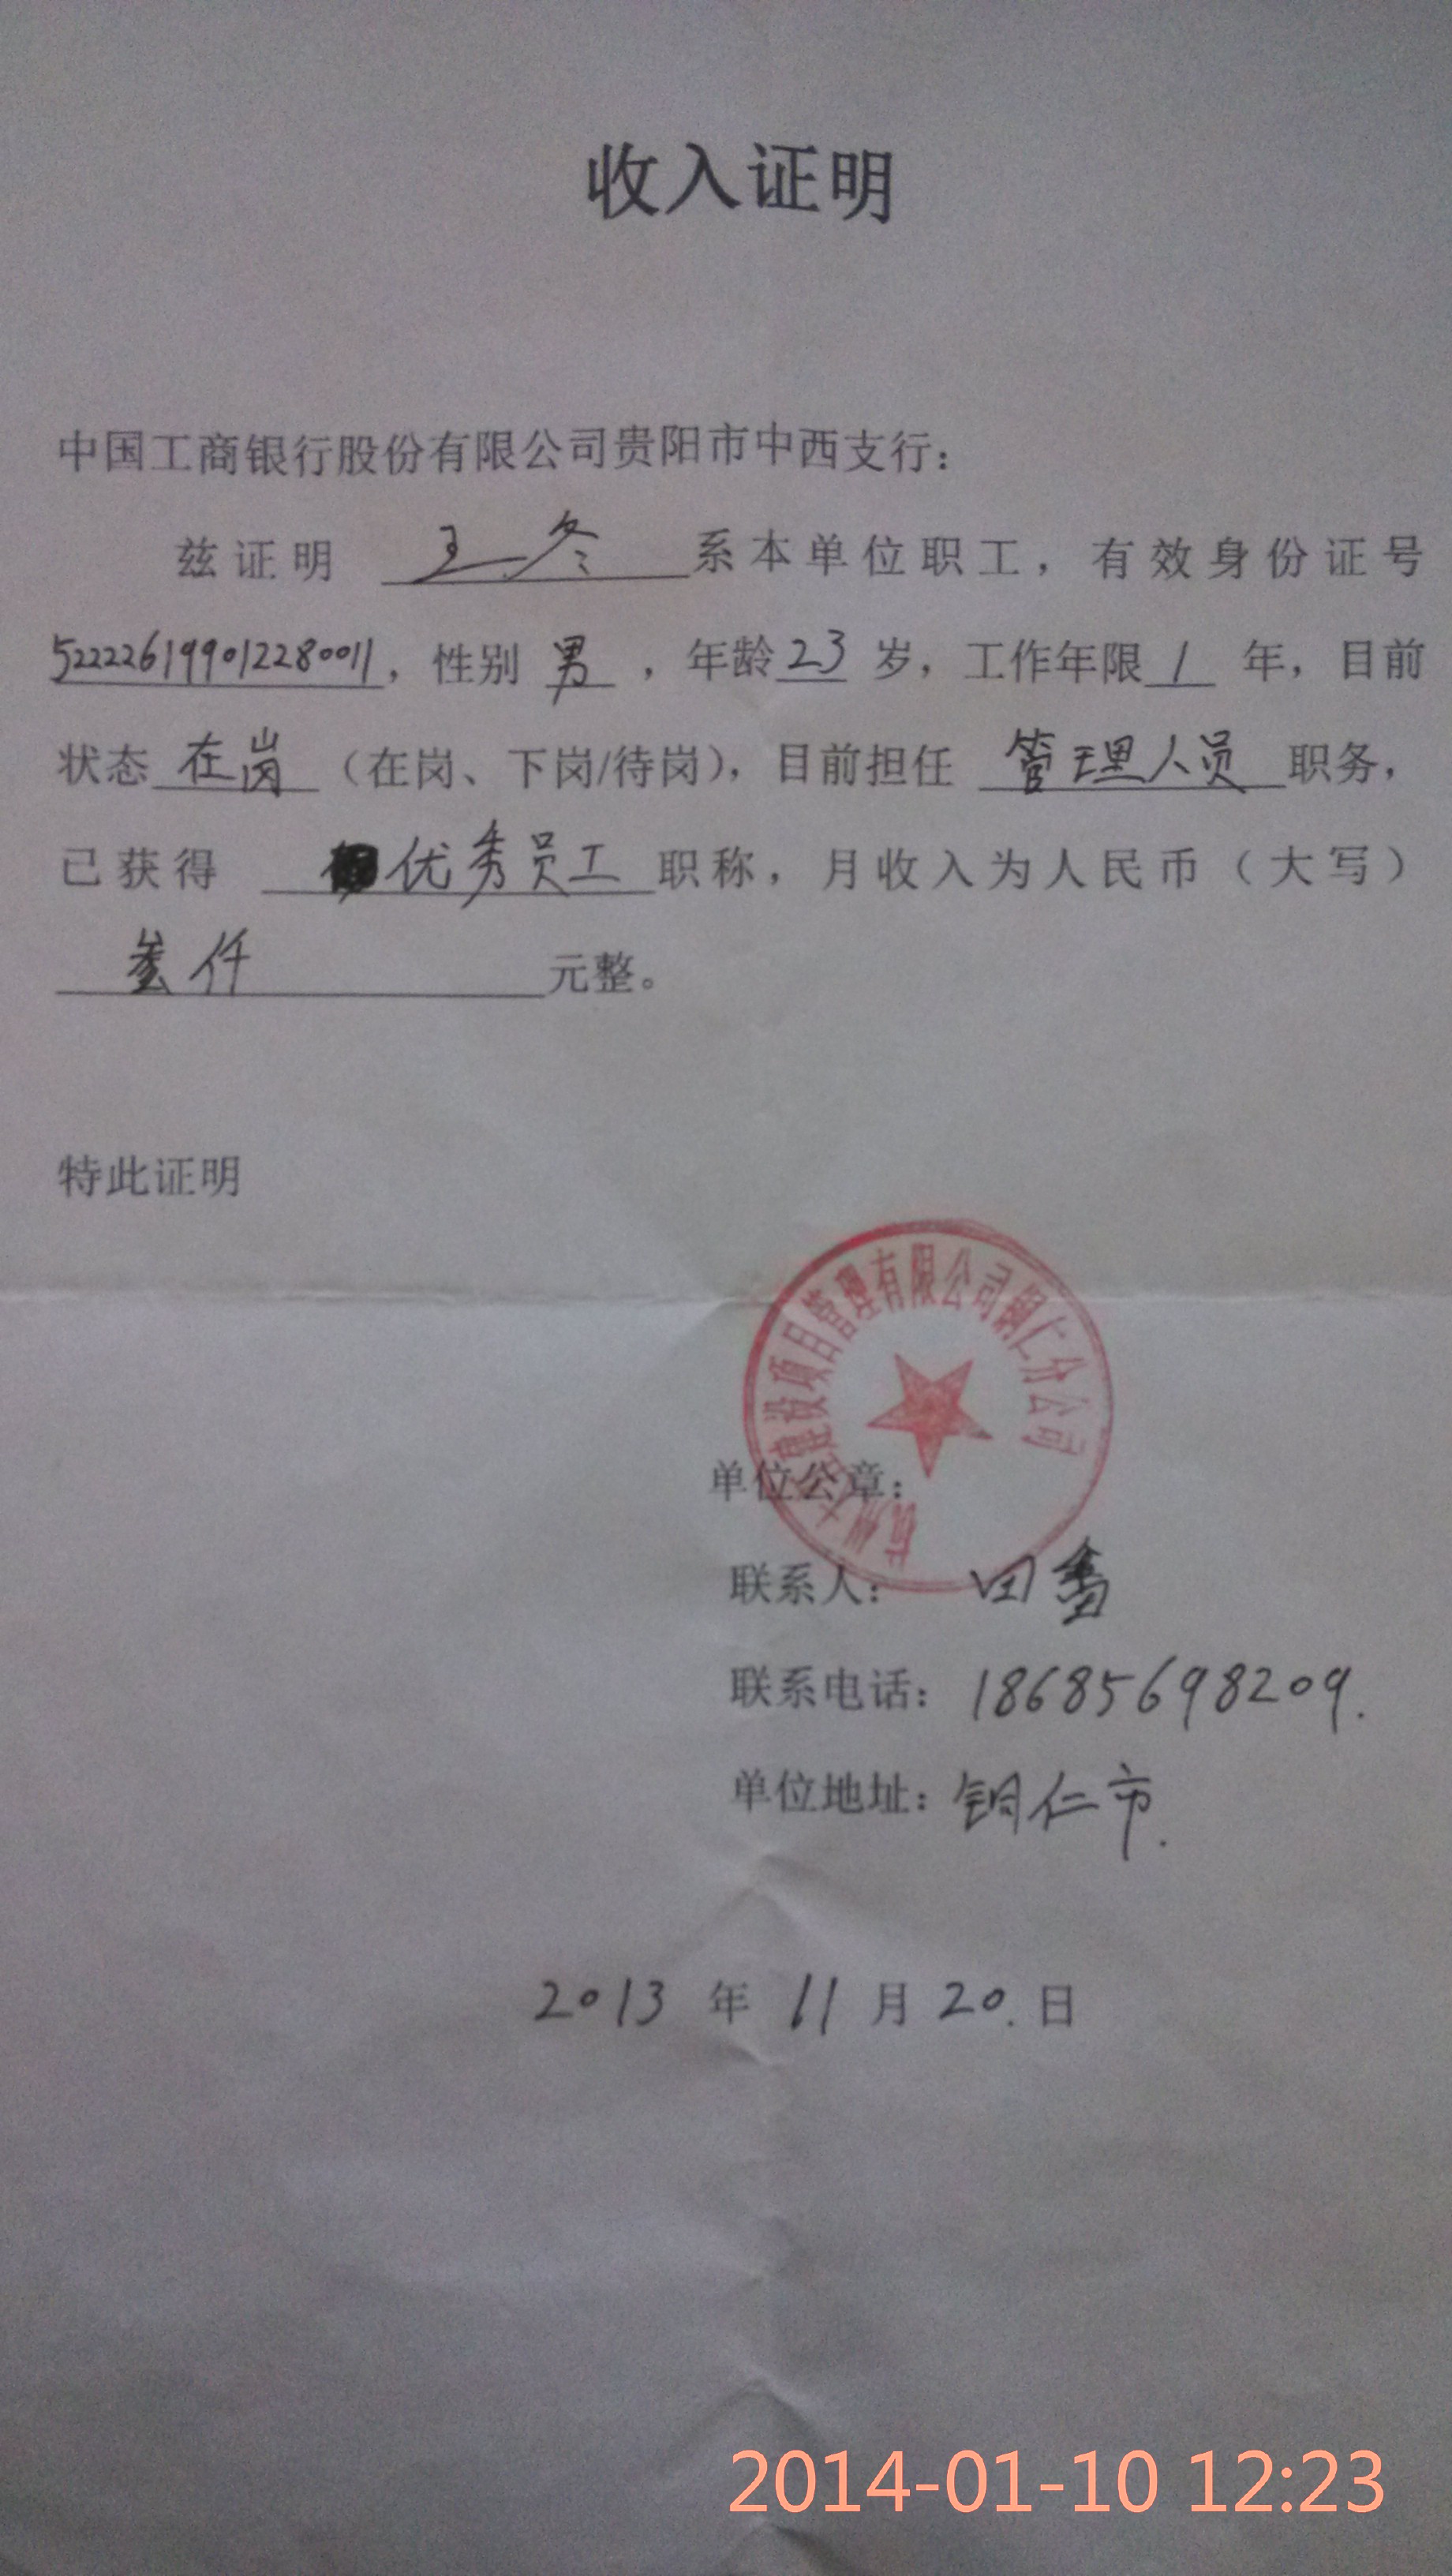 收入证明
中国工商银行股份有限公司贵阳市中西支行：
兹证明 王冬 系本单位职工，有效身份证号
522226199012280011，性别 男 ，年龄 23 岁，工作年限 1 年，目前
状态 在岗 （在岗、下岗/待岗），目前担任 管理人员 职务，
已获得 优秀员工 职称，月收入为人民币（大写）
叁仟 元整。
特此证明
建设项目管理有限公司铜仁分公司
单位公章：
联系人： 田
联系电话：18685698209.
单位地址：铜仁市.
2013 年 11 月 20. 日
2014-01-10 12:23